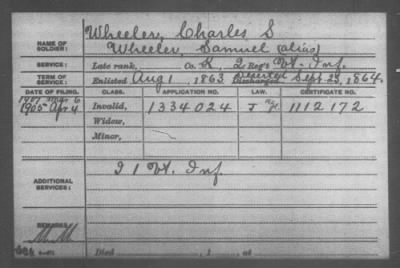 NAME OF SOLDIER: Wheeler, Charles S
Wheeler, Samuel (alias)
SERVICE: Late rank, Co. K, 2 Reg't Vt. Inf.
TERM OF SERVICE: Enlisted Aug 1, 1863 Deserted Discharged Sept. 23, 1864.
DATE OF FILING. CLASS. APPLICATION NO. LAW. CERTIFICATE NO.
1907
1905 Apr 4 Invalid, 1334024 1112172
Widow,
Minor,
ADDITIONAL SERVICES: I 1 Vt. Inf.
REMARKS:
Died , 1 , at